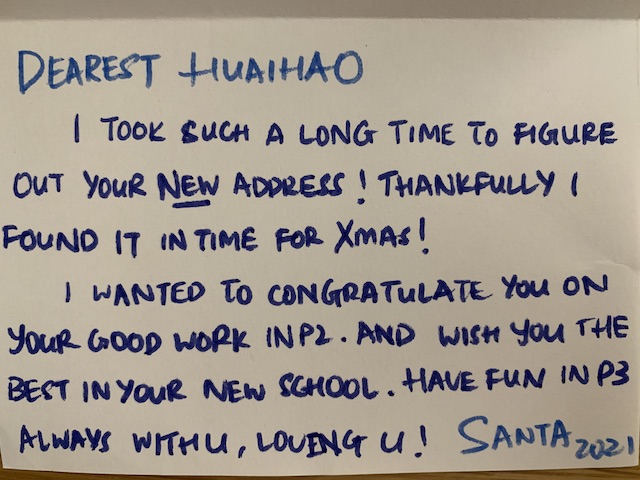 DEAREST HUAIHAO
I TOOK SUCH A LONG TIME TO FIGURE
OUT YOUR NEW ADDRESS! THANKFULLY I
FOUND IT IN TIME FOR XMAS!
I WANTED TO CONGRATULATE YOU ON
YOUR GOOD WORK IN P2. AND WISH YOU THE
BEST IN YOUR NEW SCHOOL. HAVE FUN IN P3
ALWAYS WITH U, LOVENG U! SANTA 2021